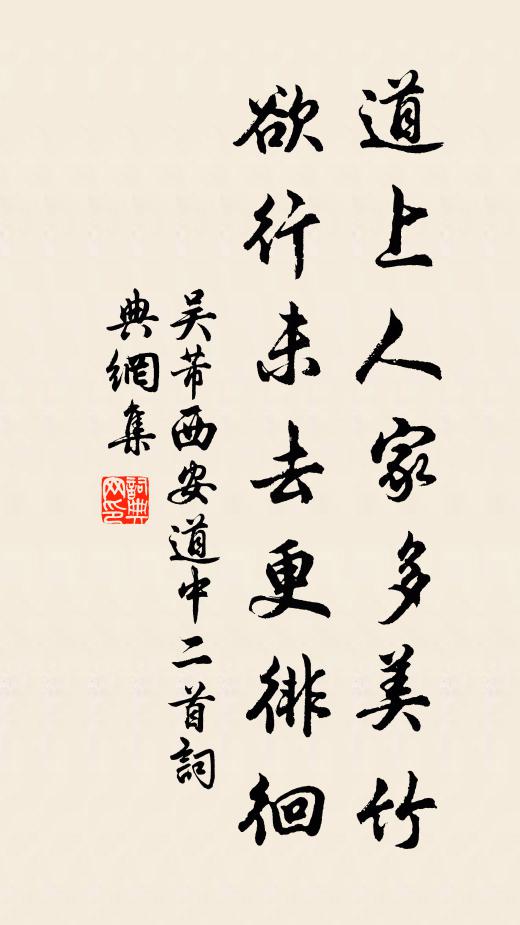 道上人家多美竹
欲行未去更徘徊
吳芾西安道中二首詞
典網集
詞典網印